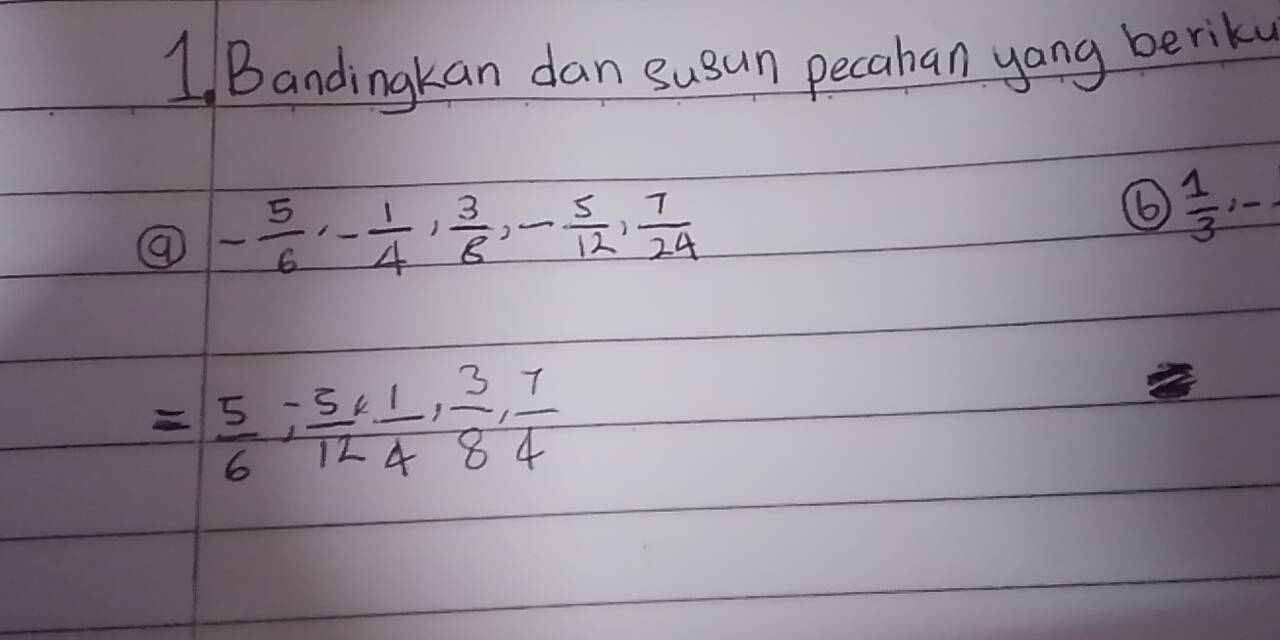 1. Bandingkan dan susun pecahan yang beriku
(a) -5/6, -1/4, 3/8, -5/12, 7/24
(b) 1/3, -
= 5/6, -5/12, 1/4, 3/8, 7/4